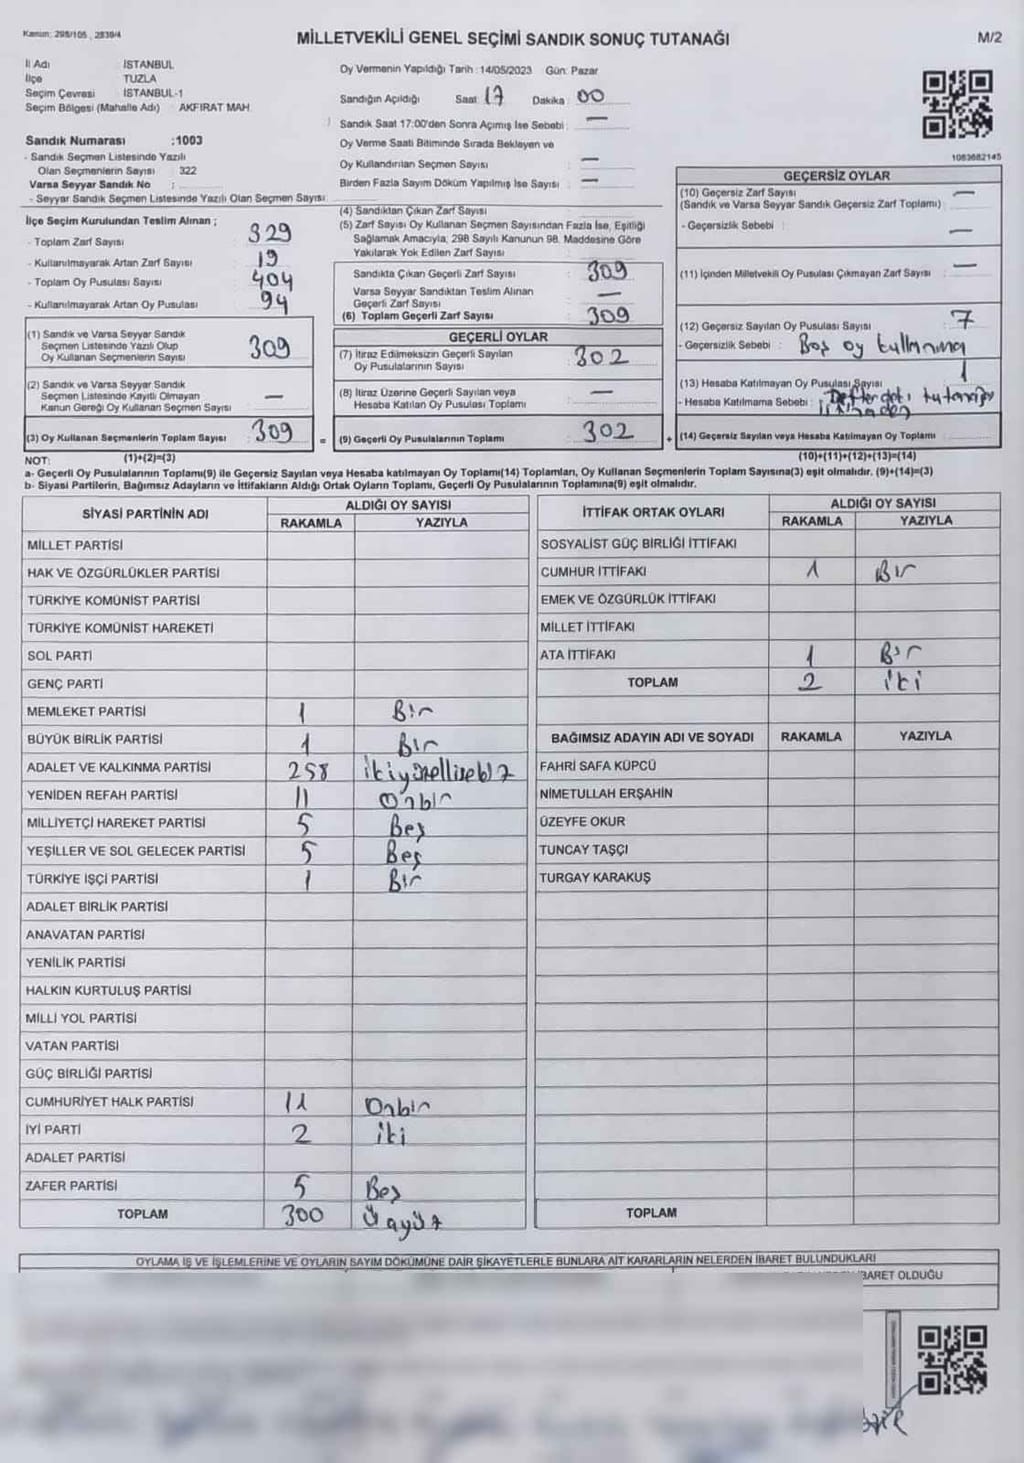 Kanun: 298/105 , 2839/4
MİLLETVEKİLİ GENEL SEÇİMİ SANDIK SONUÇ TUTANAĞI
M/2
İl Adı İSTANBUL
İlçe TUZLA
Seçim Çevresi İSTANBUL-1
Seçim Bölgesi (Mahalle Adı) AKFIRAT MAH.
Sandık Numarası :1003
- Sandık Seçmen Listesinde Yazılı
Olan Seçmenlerin Sayısı : 322
Varsa Seyyar Sandık No :
- Seyyar Sandık Seçmen Listesinde Yazılı Olan Seçmen Sayısı:
Oy Vermenin Yapıldığı Tarih :14/05/2023 Gün: Pazar
Sandığın Açıldığı Saat: 17 Dakika : 00
Sandık Saat 17:00'den Sonra Açımış İse Sebebi : —
Oy Verme Saati Bitiminde Sırada Bekleyen ve
Oy Kullandırılan Seçmen Sayısı : —
Birden Fazla Sayım Döküm Yapılmış İse Sayısı : —
1083682145
İlçe Seçim Kurulundan Teslim Alınan ;
- Toplam Zarf Sayısı : 329
- Kullanılmayarak Artan Zarf Sayısı : 19
- Toplam Oy Pusulası Sayısı : 404
- Kullanılmayarak Artan Oy Pusulası : 94
(1) Sandık ve Varsa Seyyar Sandık
Seçmen Listesinde Yazılı Olup
Oy Kullanan Seçmenlerin Sayısı : 309
(2) Sandık ve Varsa Seyyar Sandık
Seçmen Listesinde Kayıtlı Olmayan
Kanun Gereği Oy Kullanan Seçmen Sayısı : —
(3) Oy Kullanan Seçmenlerin Toplam Sayısı : 309
(4) Sandıktan Çıkan Zarf Sayısı :
(5) Zarf Sayısı Oy Kullanan Seçmen Sayısından Fazla İse, Eşitliği
Sağlamak Amacıyla, 298 Sayılı Kanunun 98. Maddesine Göre
Yakılarak Yok Edilen Zarf Sayısı :
Sandıkta Çıkan Geçerli Zarf Sayısı : 309
Varsa Seyyar Sandıktan Teslim Alınan
Geçerli Zarf Sayısı : —
(6) Toplam Geçerli Zarf Sayısı : 309
GEÇERLİ OYLAR
(7) İtiraz Edilmeksizin Geçerli Sayılan
Oy Pusulalarının Sayısı : 302
(8) İtiraz Üzerine Geçerli Sayılan veya
Hesaba Katılan Oy Pusulası Toplamı : —
= (9) Geçerli Oy Pusulalarının Toplamı : 302
GEÇERSİZ OYLAR
(10) Geçersiz Zarf Sayısı : —
(Sandık ve Varsa Seyyar Sandık Geçersiz Zarf Toplamı)
- Geçersizlik Sebebi : —
(11) İçinden Milletvekili Oy Pusulası Çıkmayan Zarf Sayısı : —
(12) Geçersiz Sayılan Oy Pusulası Sayısı : 7
- Geçersizlik Sebebi : Boş oy kullanma
(13) Hesaba Katılmayan Oy Pusulası Sayısı 1
- Hesaba Katılmama Sebebi :
+ (14) Geçersiz Sayılan veya Hesaba Katılmayan Oy Toplamı :
NOT: (1)+(2)=(3) (10)+(11)+(12)+(13)=(14)
a- Geçerli Oy Pusulalarının Toplamı(9) ile Geçersiz Sayılan veya Hesaba katılmayan Oy Toplamı(14) Toplamları, Oy Kullanan Seçmenlerin Toplam Sayısına(3) eşit olmalıdır. (9)+(14)=(3)
b- Siyasi Partilerin, Bağımsız Adayların ve İttifakların Aldığı Ortak Oyların Toplamı, Geçerli Oy Pusulalarının Toplamına(9) eşit olmalıdır.
SİYASİ PARTİNİN ADI ALDIĞI OY SAYISI
RAKAMLA YAZIYLA
MİLLET PARTİSİ
HAK VE ÖZGÜRLÜKLER PARTİSİ
TÜRKİYE KOMÜNİST PARTİSİ
TÜRKİYE KOMÜNİST HAREKETİ
SOL PARTİ
GENÇ PARTİ
MEMLEKET PARTİSİ 1 Bir
BÜYÜK BİRLİK PARTİSİ 1 Bir
ADALET VE KALKINMA PARTİSİ 258
YENİDEN REFAH PARTİSİ 11 Onbir
MİLLİYETÇİ HAREKET PARTİSİ 5 Beş
YEŞİLLER VE SOL GELECEK PARTİSİ 5 Beş
TÜRKİYE İŞÇİ PARTİSİ 1 Bir
ADALET BİRLİK PARTİSİ
ANAVATAN PARTİSİ
YENİLİK PARTİSİ
HALKIN KURTULUŞ PARTİSİ
MİLLİ YOL PARTİSİ
VATAN PARTİSİ
GÜÇ BİRLİĞİ PARTİSİ
CUMHURİYET HALK PARTİSİ 11 Onbir
İYİ PARTİ 2 iki
ADALET PARTİSİ
ZAFER PARTİSİ 5 Beş
TOPLAM 300 Üçyüz
İTTİFAK ORTAK OYLARI ALDIĞI OY SAYISI
RAKAMLA YAZIYLA
SOSYALİST GÜÇ BİRLİĞİ İTTİFAKI
CUMHUR İTTİFAKI 1 Bir
EMEK VE ÖZGÜRLÜK İTTİFAKI
MİLLET İTTİFAKI
ATA İTTİFAKI 1 Bir
TOPLAM 2 iki
BAĞIMSIZ ADAYIN ADI VE SOYADI RAKAMLA YAZIYLA
FAHRİ SAFA KÜPCÜ
NİMETULLAH ERŞAHİN
ÜZEYFE OKUR
TUNCAY TAŞÇI
TURGAY KARAKUŞ
TOPLAM
OYLAMA İŞ VE İŞLEMLERİNE VE OYLARIN SAYIM DÖKÜMÜNE DAİR ŞİKAYETLERLE BUNLARA AİT KARARLARIN NELERDEN İBARET BULUNDUKLARI
İBARET OLDUĞU